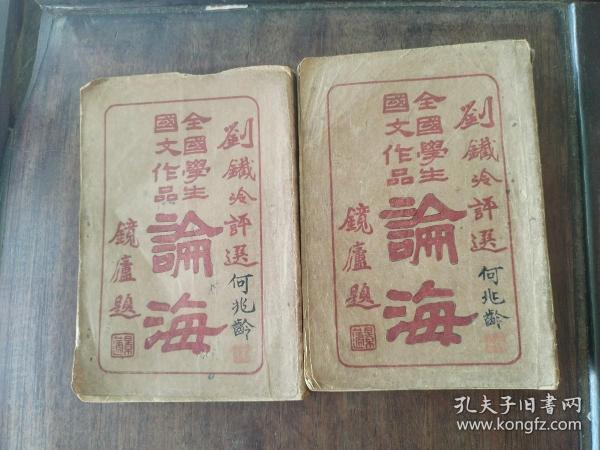 劉鐵冷評選
何兆齡
全國學生
國文作品
論海
鏡廬題
劉鐵冷評選
何兆齡
全國學生
國文作品
論海
鏡廬題
孔夫子旧书网
www.kongfz.com